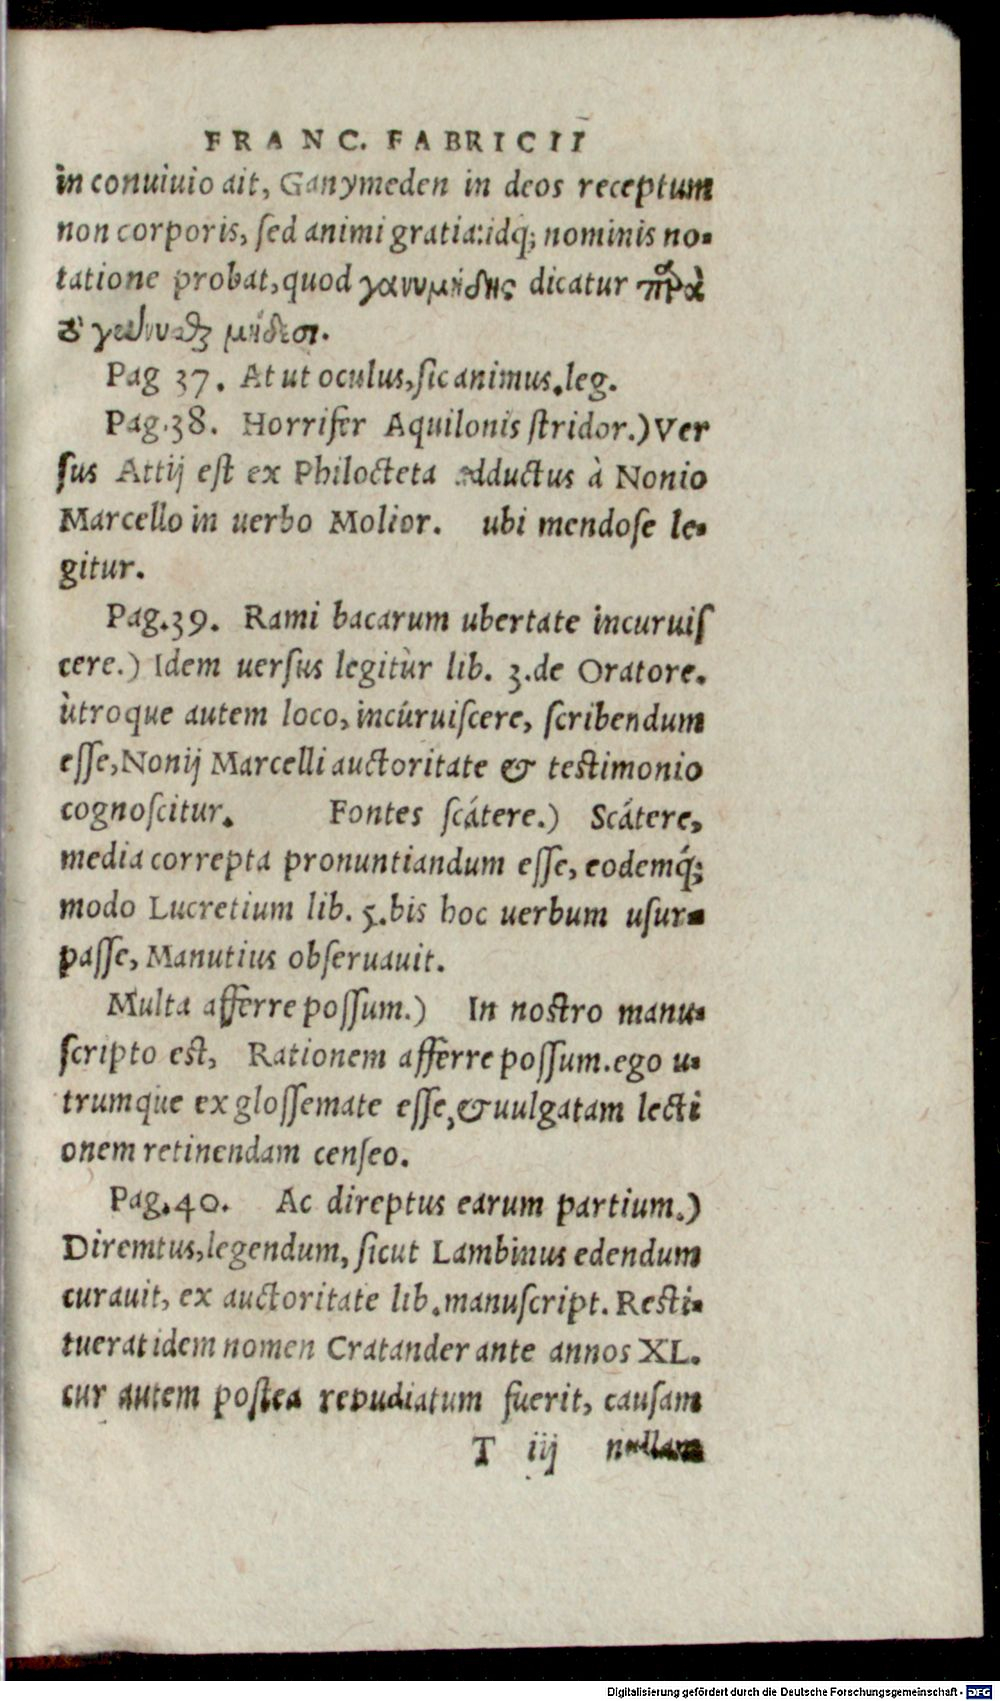 FRANC. FABRICII
in conuiuio ait, Ganymeden in deos receptum
non corporis, ſed animi gratia:idq́; nominis no-
tatione probat, quod γανυμήδης dicatur παρὰ
τὸ γάνυσθαι μήδεσι.
Pag 37. At ut oculus, ſic animus. leg.
Pag. 38. Horrifer Aquilonis ſtridor.) Ver
ſus Attij eſt ex Philocteta adductus à Nonio
Marcello in uerbo Molior. ubi mendoſe le-
gitur.
Pag. 39. Rami bacarum ubertate incuruiſ
cere.) Idem uerſus legitùr lib. 3. de Oratore.
ùtroque autem loco, incúruiſcere, ſcribendum
eſſe, Nonij Marcelli auctoritate & testimonio
cognoſcitur. Fontes ſcátere.) Scátere,
media correpta pronuntiandum eſſe, eodemq́;
modo Lucretium lib. 5. bis hoc uerbum uſur-
paſſe, Manutius obſeruauit.
Multa afferre poſſum.) In nostro manu-
ſcripto est, Rationem afferre poſſum. ego u-
trumque ex gloſſemate eſſe, & uulgatam lecti
onem retinendam cenſeo.
Pag. 40. Ac direptus earum partium.)
Diremtus, legendum, ſicut Lambinus edendum
curauit, ex auctoritate lib. manuſcript. Resti-
tuerat idem nomen Cratander ante annos XL.
cur autem poſtea repudiatum fuerit, cauſam
T iij nullam
Digitalisierung gefördert durch die Deutsche Forschungsgemeinschaft - DFG